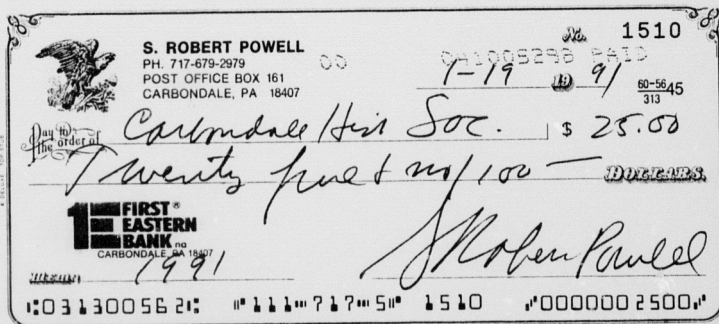 No. 1510
S. ROBERT POWELL
PH. 717-679-2979
POST OFFICE BOX 161
CARBONDALE, PA 18407
00 041005298 PAID
1-19 19 91
60-56 45
313
Pay to the order of Carbondale Hist Soc. $ 25.00
Twenty five & no/100 — DOLLARS
1E FIRST® EASTERN BANK na
CARBONDALE, PA 18407
1991
S Robert Powell
⑆031300562⑆ ⑈111⑉717⑉5⑈ 1510 ⑈0000002500⑈